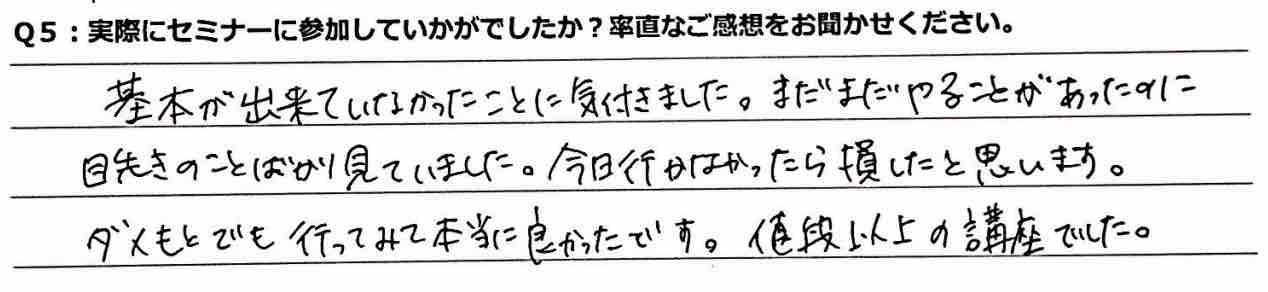 Q5：実際にセミナーに参加していかがでしたか？率直なご感想をお聞かせください。
基本が出来ていなかったことに気付きました。まだまだやることがあったのに
目先きのことばかり見ていました。今日行かなかったら損したと思います。
ダメもとでも行ってみて本当に良かったです。値段以上の講座でした。